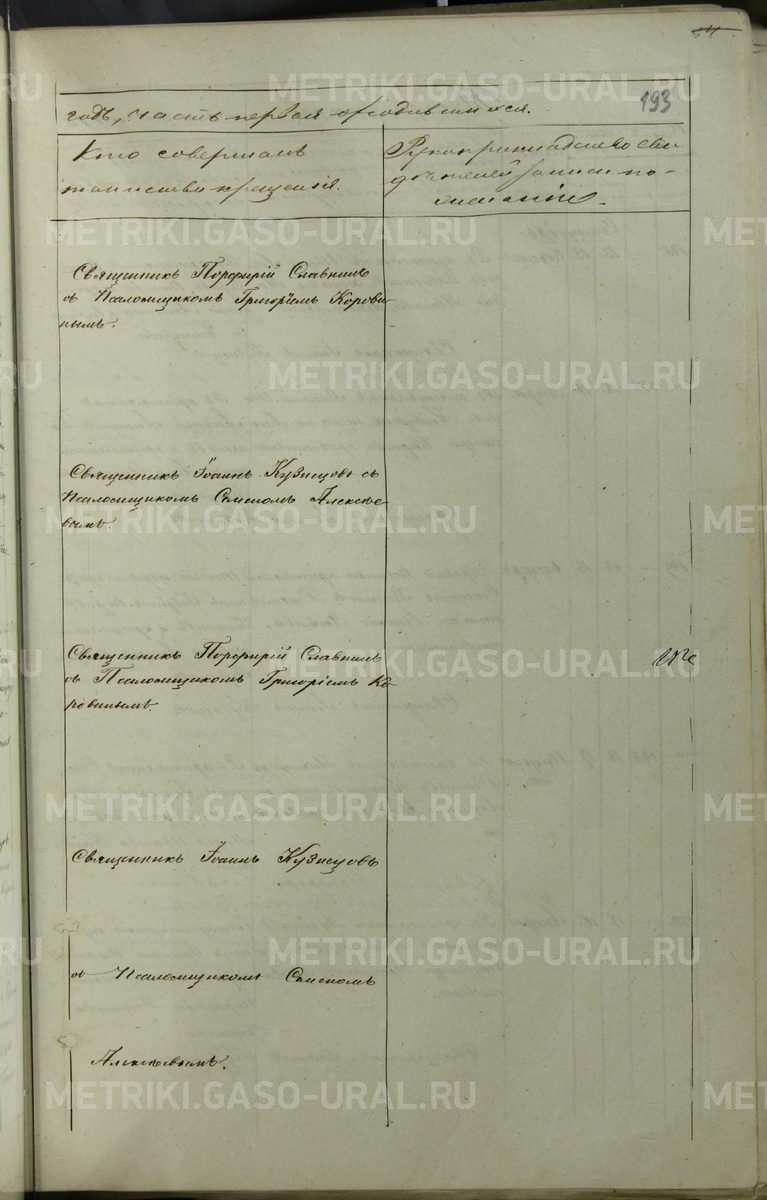 193
годъ, часть первая о родившихся.
Кто совершалъ
таинство крещенія.
Рукоприкладство сви-
дѣтелей записи по
желанію.
Священникъ Порфирій Славнинъ
съ Псаломщикомъ Григоріемъ Корови-
нымъ.
Священникъ Іоаннъ Кузнецовъ съ
Псаломщикомъ Семеномъ Алексѣе-
вымъ.
Священникъ Порфирій Славнинъ
съ Псаломщикомъ Григоріемъ Ко-
ровинымъ.
Священникъ Іоаннъ Кузнецовъ
съ Псаломщикомъ Семеномъ
Алексѣевымъ.
METRIKI.GASO-URAL.RU